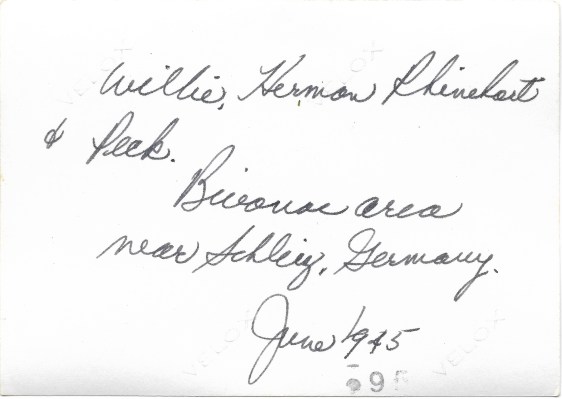 Willie, Herman Rhinehart
& Peck.
Bivouac area
near Schleiz, Germany.
June 1945
VELOX
VELOX
VELOX
VELOX